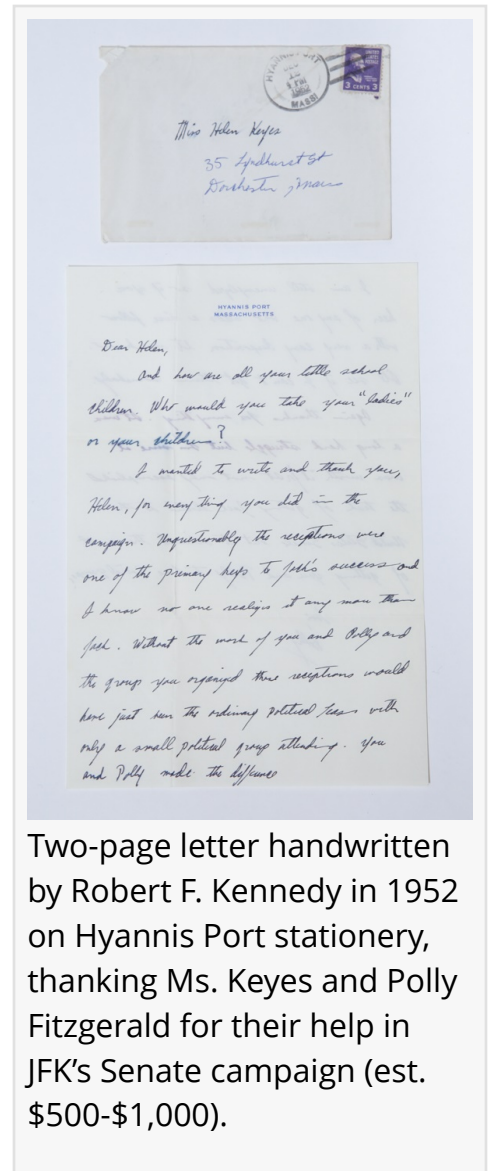 HYANNIS PORT
MASS
UNITED STATES POSTAGE
3 CENTS 3
Miss Helen Keyes
35 Lyndhurst St
Dorchester, Mass
HYANNIS PORT
MASSACHUSETTS
Dear Helen,
And how are all your little school
children. Who would you take your "ladies"
or your children?
I wanted to write and thank you,
Helen, for every thing you did in the
campaign. Unquestionably the receptions were
one of the primary keys to Jack's success and
I know no one realizes it any more than
Jack. Without the work of you and Polly and
the group you organized those receptions would
have just been the ordinary political teas with
only a small political group attending. You
and Polly made the difference
Two-page letter handwritten
by Robert F. Kennedy in 1952
on Hyannis Port stationery,
thanking Ms. Keyes and Polly
Fitzgerald for their help in
JFK's Senate campaign (est.
$500-$1,000).